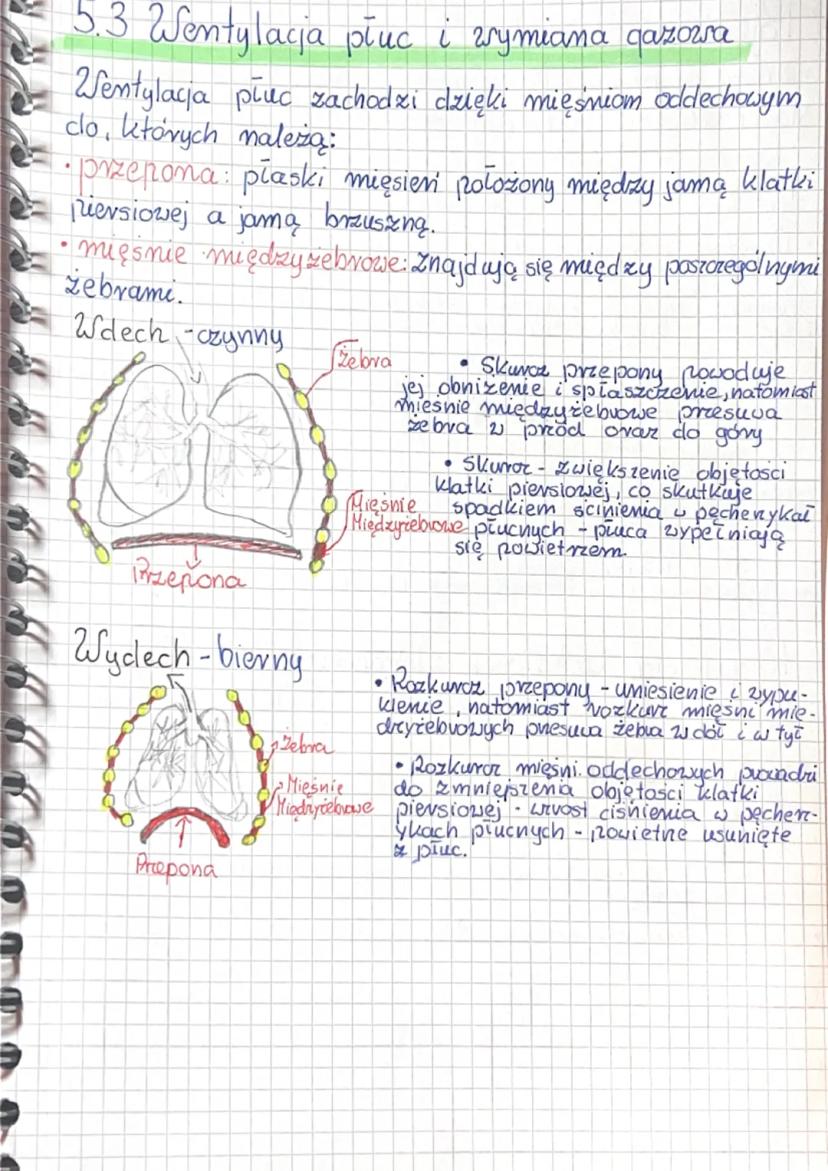 5.3 Wentylacja płuc i wymiana gazowa
Wentylacja płuc zachodzi dzięki mięśniom oddechowym
do, których należą:
• przepona: płaski mięsień położony między jamą klatki
piersiowej a jamą brzuszną.
• mięśnie międzyżebrowe: znajdują się między poszczególnymi
żebrami.
Wdech - czynny
Żebra
• Skurcz przepony powoduje
jej obniżenie i spłaszczenie, natomiast
mięśnie międzyżebrowe przesuwa
żebra w przód oraz do góry
• Skurcz - zwiększenie objętości
klatki piersiowej, co skutkuje
spadkiem ścinienia w pęcherzykał
płucnych - płuca wypełniają
się powietrzem.
Mięśnie
Międzyżebrowe
Przepona
Wydech - bierny
• Rozkurcz przepony - uniesienie i wypu-
klenie, natomiast rozkurz mięśni mię-
dzyżebrowych przesuwa żebra w dół i w tył
• Rozkurcz mięśni oddechowych prowadzi
do zmniejszenia objętości klatki
piersiowej - wzrost ciśnienia w pęcher-
zykach płucnych - powietrze usunięte
z płuc.
Żebra
Mięśnie
Międzyżebrowe
Przepona